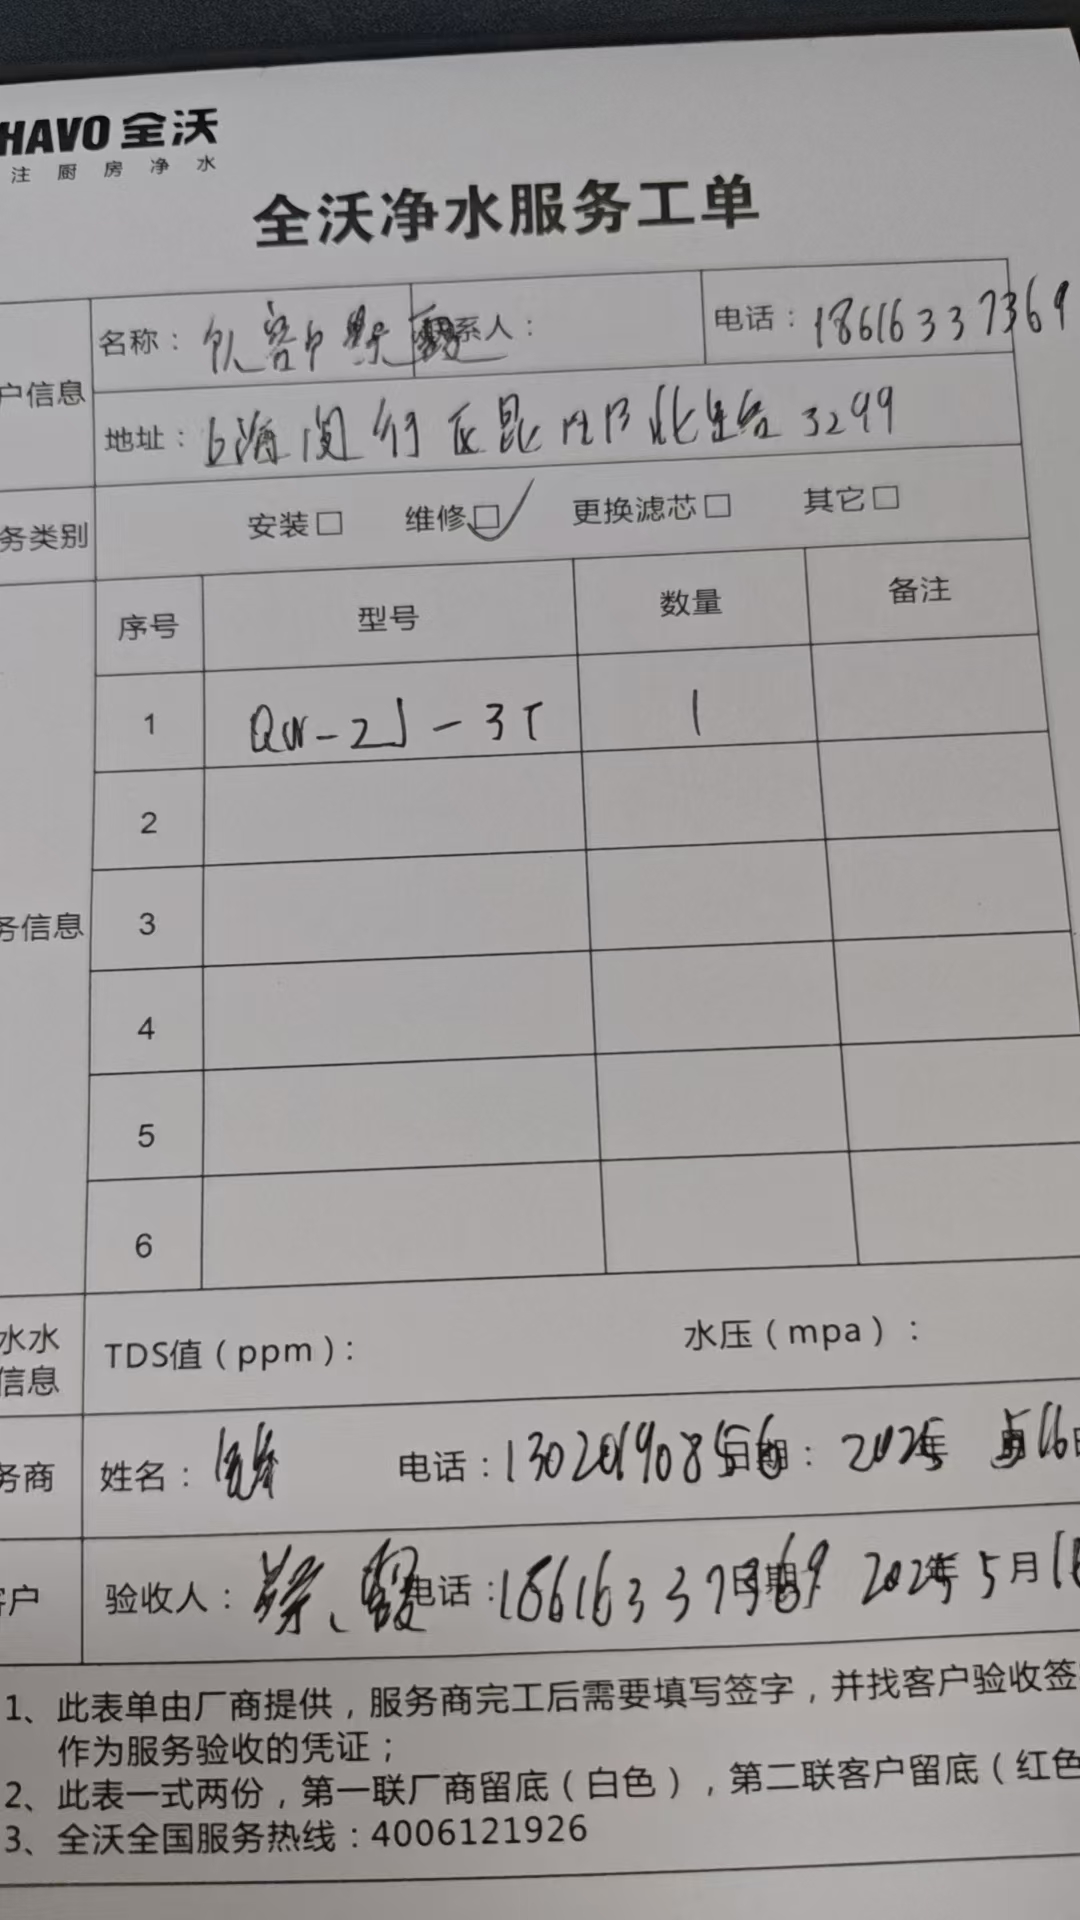 HAVO 全沃
注厨房净水
全沃净水服务工单
户信息
名称： 系人： 电话：18616337369
地址：上海闵行区昆阳北路3299
务类别 安装□ 维修□✓ 更换滤芯□ 其它□
序号 型号 数量 备注
1 QW-2J-3T 1
2
3
务信息
4
5
6
水水
信息
TDS值（ppm）： 水压（mpa）：
务商 姓名： 电话：13020190856 日期：2025年5月16日
客户 验收人： 电话：18616337369 日期 2025年5月16
1、此表单由厂商提供，服务商完工后需要填写签字，并找客户验收签
作为服务验收的凭证；
2、此表一式两份，第一联厂商留底（白色），第二联客户留底（红色
3、全沃全国服务热线：4006121926